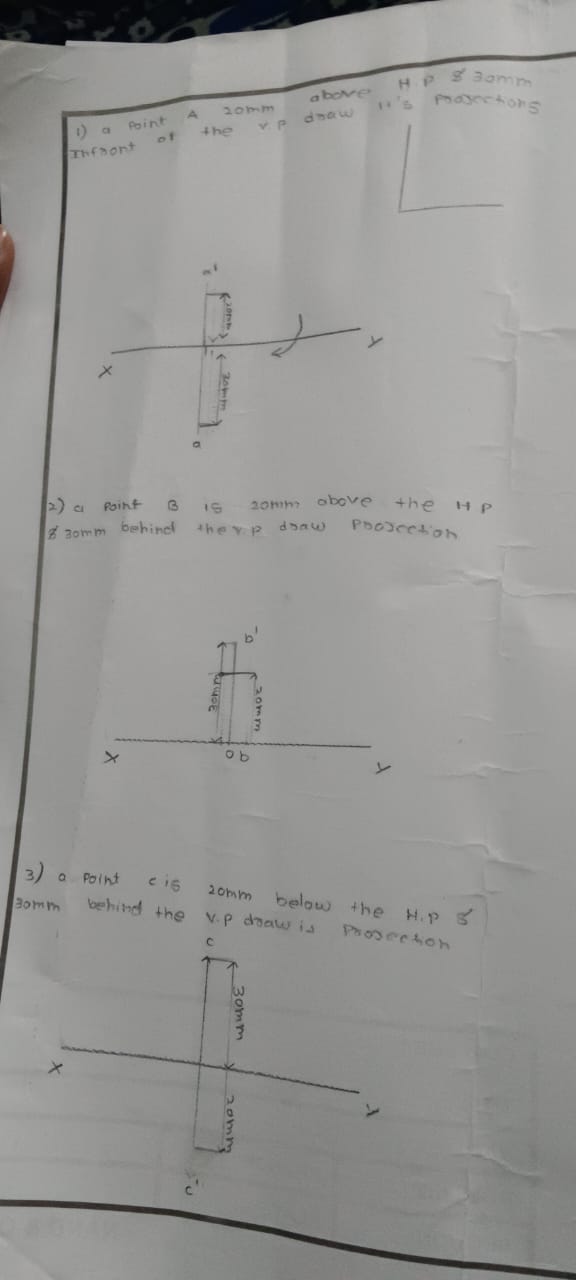 1) a Point A 20mm above H.P & 30mm
Infront of the v.p draw it's projections
a'
20mm
30mm
X
Y
a
2) a Point B is 20mm above the HP
& 30mm behind the v.p draw Projection
b'
30mm
20mm
X
o b
Y
3) a Point c is 20mm below the H.P &
30mm behind the v.p draw is Projection
c
30mm
X
20mm
Y
c'